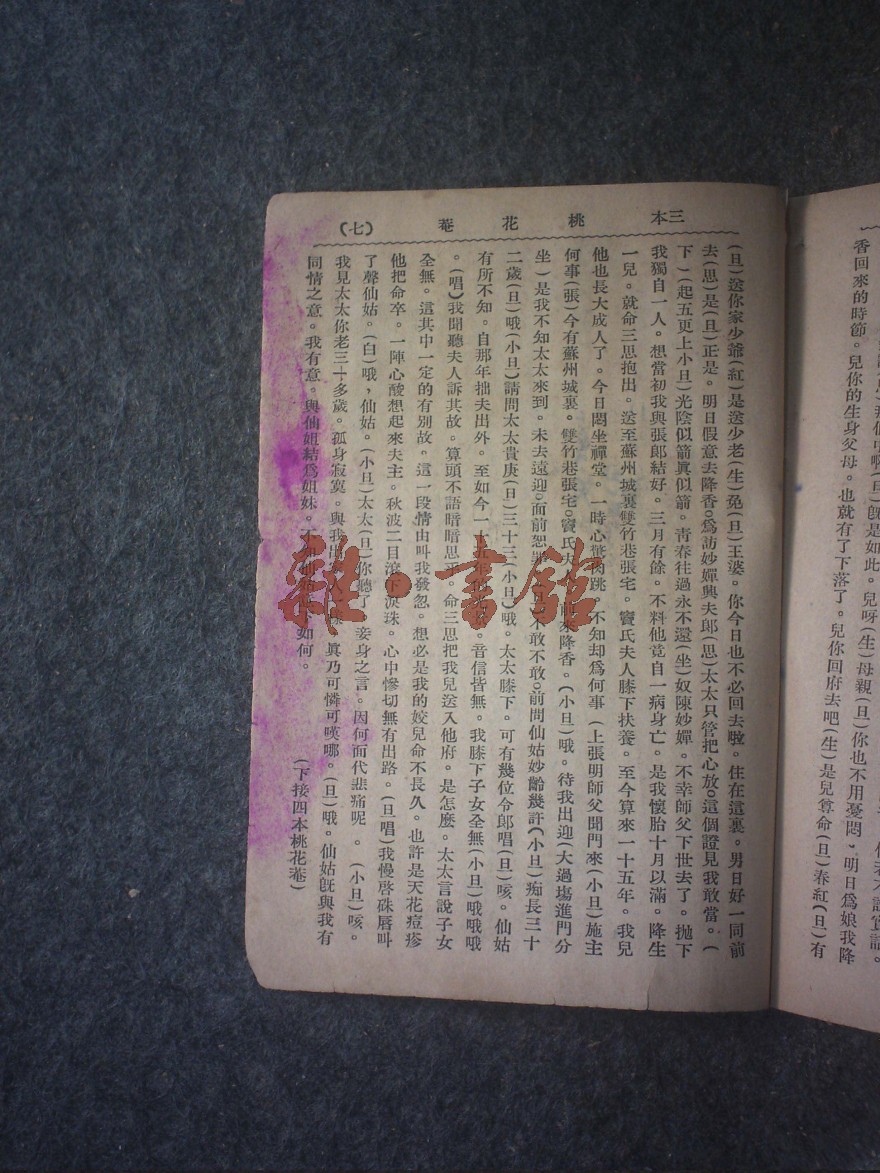 三本　桃花菴　(七)
(旦)送你家少爺(紅)是送少老(生)免(旦)王婆。你今日也不必回去啦。住在這裏。男日好一同前
去(思)是(旦)正是。明日假意去降香。爲訪妙嬋興夫郎(思)太太只管把心放。這個證見我敢當。(
下)(起五更上小旦)光陰似箭眞似箭。青春往過永不還(坐)奴陳妙嬋。不幸師父下世去了。抛下
我獨自一人。想當初我與張郎結好。三月有餘。不料他竟自一病身亡。是我懷胎十月以滿。降生
一兒。就命三思抱出。送至蘇州城裏雙竹巷張宅。竇氏夫人膝下扶養。至今算來一十五年。我兒
他也長大成人了。今日悶坐禪堂。一時心驚肉跳。不知却爲何事(上張明師父開門來(小旦)施主
何事(張)今有蘇州城裏。雙竹巷張宅。竇氏夫人前來降香。(小旦)哦。待我出迎(大過塲進門分
坐)是我不知太太來到。未去遠迎。面前恕罪(旦)不敢不敢。前問仙姑妙齡幾許(小旦)痴長三十
二歲(旦)哦(小旦)請問太太貴庚(日)三十三(小旦)哦。太太膝下。可有幾位令郎唱(旦)咳。仙姑
有所不知。自那年拙夫出外。至如今一十五年的光景。音信皆無。我膝下子女全無(小旦)哦哦哦
。(唱)我聞聽夫人訴其故。算頭不語暗暗思乎。命三思把我兒送入他府。是怎麽。太太言說子女
全無。這其中一定的有别故。這一段情由叫我發忽。想必是我的姣兒命不長久。也許是天花痘疹
他把命卒。一陣心酸想起來夫主。秋波二目滾下淚珠。心中慘切無有出路。(旦唱)我慢啓硃唇叫
了聲仙姑。(白)哦，仙姑。(小旦)太太(旦)你聽了。妾身之言。因何而代悲痛呢　。(小旦)咳。
我見太太你老三十多歲。孤身寂寞。與我出　眞乃可憐可嘆哪。(旦)哦。仙姑旣與我有
同情之意。我有意。與仙姐結爲姐妹。不知仙姑　如何。
(下接四本桃花菴)
旣是如此。兒呀(生)母親(旦)你也不用憂悶、明日爲娘我降
香回來的時節。兒你的生身父母。也就有了下落了。兒你回府去吧(生)是兒尊命(旦)春紅(旦)有
雜·書館